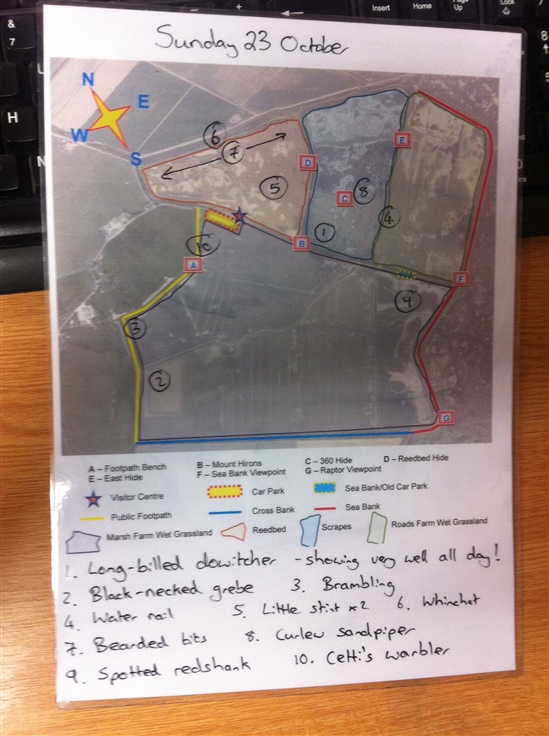 Insert Home Page Up Lock
& 7
H
N
Sunday 23 October
N
E
W
S
6
7
D
E
5
C 8
4
1
10
B
A
F
9
3
2
G
A – Footpath Bench B – Mount Hirons C – 360 Hide D – Reedbed Hide
E – East Hide F – Sea Bank Viewpoint G – Raptor Viewpoint
Visitor Centre Car Park Sea Bank/Old Car Park
Public Footpath Cross Bank Sea Bank
Marsh Farm Wet Grassland Reedbed Scrapes Roads Farm Wet Grassland
1. Long-billed dowitcher - showing very well all day!
2. Black-necked grebe 3. Brambling
4. Water rail 5. Little stint x2 6. Whinchat
7. Bearded tits 8. Curlew sandpiper
9. Spotted redshank 10. Cetti's warbler